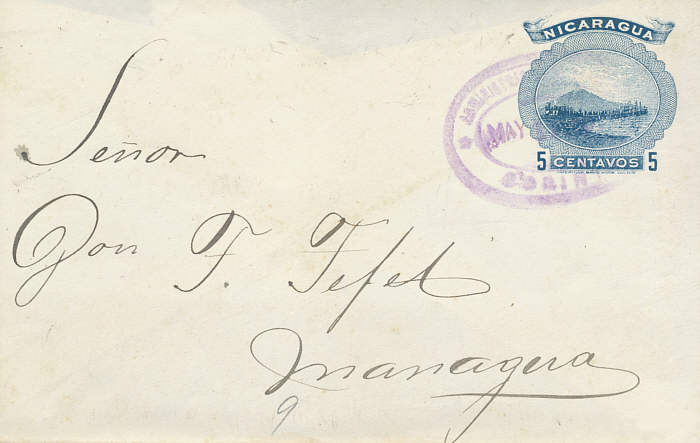 NICARAGUA
MAY
5 CENTAVOS 5
Señor
Don F. Tefel
Managera
9